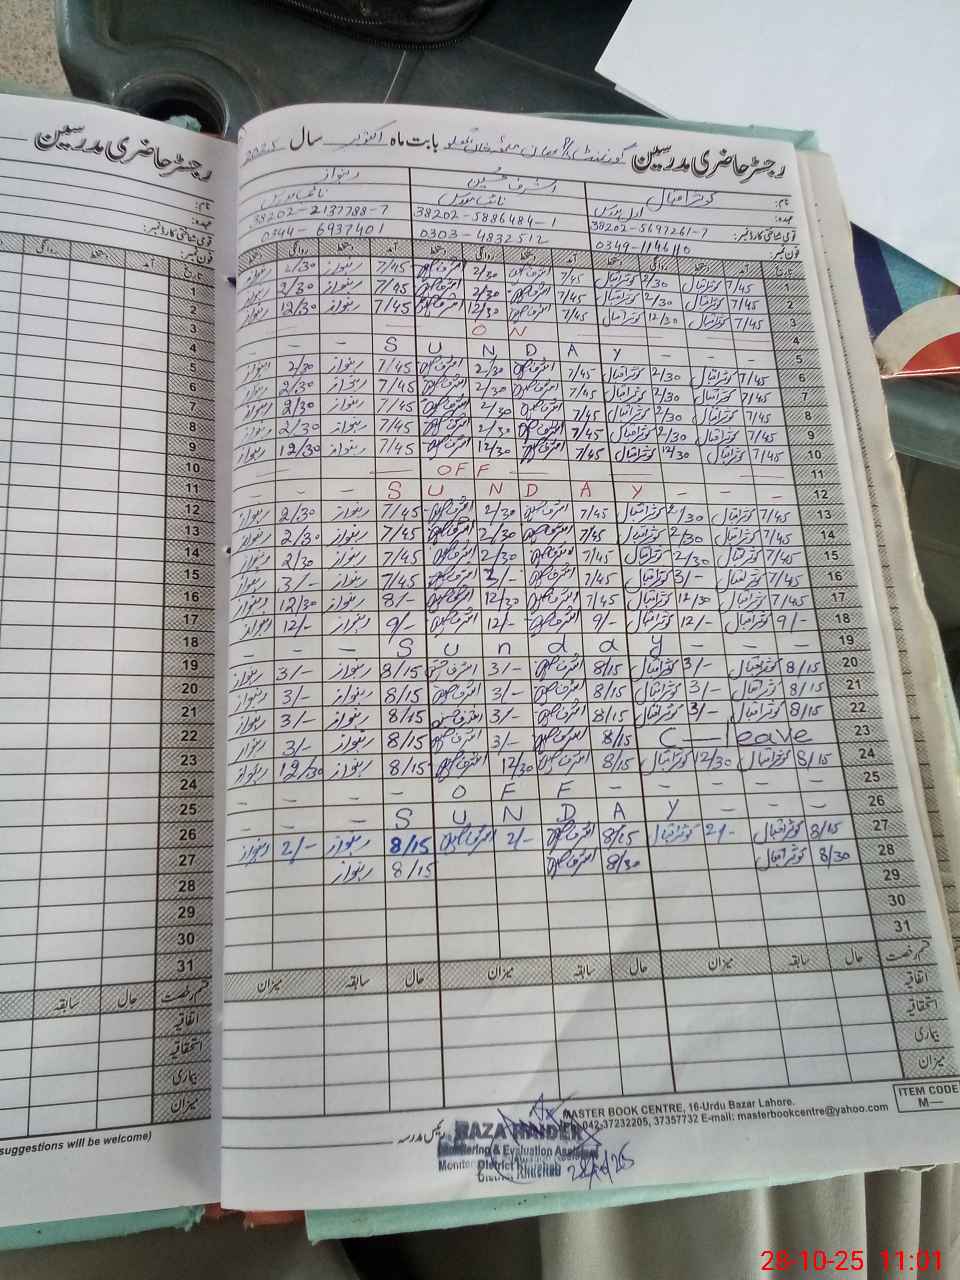 رجسٹر حاضری مدرسین
بابت ماہ اکتوبر سال 2025
نام: کوثر اقبال اشرف حسین ربنواز
عہدہ: نائب مدرس نائب مدرس
قومی شناختی کارڈ نمبر: 38202-5697261-7 38202-5886484-1 38202-2137788-7
فون نمبر: 0349-1146110 0303-4832512 0344-6937401
تاریخ آمد دستخط روانگی دستخط آمد دستخط روانگی دستخط آمد دستخط روانگی دستخط
1 7/45 کوثر اقبال 2/30 کوثر اقبال 7/45 اشرف حسین 2/30 اشرف حسین 7/45 ربنواز 2/30 ربنواز
2 7/45 کوثر اقبال 2/30 کوثر اقبال 7/45 اشرف حسین 2/30 اشرف حسین 7/45 ربنواز 2/30 ربنواز
3 7/45 کوثر اقبال 12/30 کوثر اقبال 7/45 اشرف حسین 12/30 اشرف حسین 7/45 ربنواز 12/30 ربنواز
4 O N
5 - - - S U N D A Y - - -
6 7/45 کوثر اقبال 2/30 کوثر اقبال 7/45 اشرف حسین 2/30 اشرف حسین 7/45 ربنواز 2/30 ربنواز
7 7/45 کوثر اقبال 2/30 کوثر اقبال 7/45 اشرف حسین 2/30 اشرف حسین 7/45 ربنواز 2/30 ربنواز
8 7/45 کوثر اقبال 2/30 کوثر اقبال 7/45 اشرف حسین 2/30 اشرف حسین 7/45 ربنواز 2/30 ربنواز
9 7/45 کوثر اقبال 2/30 کوثر اقبال 7/45 اشرف حسین 2/30 اشرف حسین 7/45 ربنواز 2/30 ربنواز
10 7/45 کوثر اقبال 12/30 کوثر اقبال 7/45 اشرف حسین 12/30 اشرف حسین 7/45 ربنواز 12/30 ربنواز
11 OFF
12 - - - S U N D A Y - - -
13 7/45 کوثر اقبال 2/30 کوثر اقبال 7/45 اشرف حسین 2/30 اشرف حسین 7/45 ربنواز 2/30 ربنواز
14 7/45 کوثر اقبال 2/30 کوثر اقبال 7/45 اشرف حسین 2/30 اشرف حسین 7/45 ربنواز 2/30 ربنواز
15 7/45 کوثر اقبال 2/30 کوثر اقبال 7/45 اشرف حسین 2/30 اشرف حسین 7/45 ربنواز 2/30 ربنواز
16 7/45 کوثر اقبال 3/- کوثر اقبال 7/45 اشرف حسین 3/- اشرف حسین 7/45 ربنواز 3/- ربنواز
17 7/45 کوثر اقبال 12/30 کوثر اقبال 7/45 اشرف حسین 12/30 اشرف حسین 8/- ربنواز 12/30 ربنواز
18 9/- کوثر اقبال 12/- کوثر اقبال 9/- اشرف حسین 12/- اشرف حسین 9/- ربنواز 12/- ربنواز
19 - - - S u n d a y - - -
20 8/15 کوثر اقبال 3/- کوثر اقبال 8/15 اشرف حسین 3/- اشرف حسین 8/15 ربنواز 3/- ربنواز
21 8/15 کوثر اقبال 3/- کوثر اقبال 8/15 اشرف حسین 3/- اشرف حسین 8/15 ربنواز 3/- ربنواز
22 8/15 کوثر اقبال 3/- کوثر اقبال 8/15 اشرف حسین 3/- اشرف حسین 8/15 ربنواز 3/- ربنواز
23 C—leave 8/15 اشرف حسین 3/- اشرف حسین 8/15 ربنواز 3/- ربنواز
24 8/15 کوثر اقبال 12/30 کوثر اقبال 8/15 اشرف حسین 12/30 اشرف حسین 8/15 ربنواز 12/30 ربنواز
25 - - - - O F F - - - -
26 - - - S U N D A Y - - -
27 8/15 کوثر اقبال 2/- کوثر اقبال 8/15 اشرف حسین 2/- اشرف حسین 8/15 ربنواز 2/- ربنواز
28 8/30 کوثر اقبال 8/30 اشرف حسین 8/15 ربنواز
29
30
31
قسم رخصت حال سابقہ میزان حال سابقہ میزان حال سابقہ میزان
اتفاقیہ
استحقاقیہ
بیماری
میزان
ITEM CODE
M—
MASTER BOOK CENTRE, 16-Urdu Bazar Lahore.
042-37232205, 37357732 E-mail: masterbookcentre@yahoo.com
رئیس مدرسہ
RAZA HAIDER
Monitoring & Evaluation Assistant
District Khushab
رجسٹر حاضری مدرسین
نام:
عہدہ:
قومی شناختی کارڈ نمبر:
فون نمبر:
تاریخ آمد دستخط روانگی
1
2
3
4
5
6
7
8
9
10
11
12
13
14
15
16
17
18
19
20
21
22
23
24
25
26
27
28
29
30
31
قسم رخصت حال سابقہ
اتفاقیہ
استحقاقیہ
بیماری
میزان
suggestions will be welcome)
28-10-25 11:01